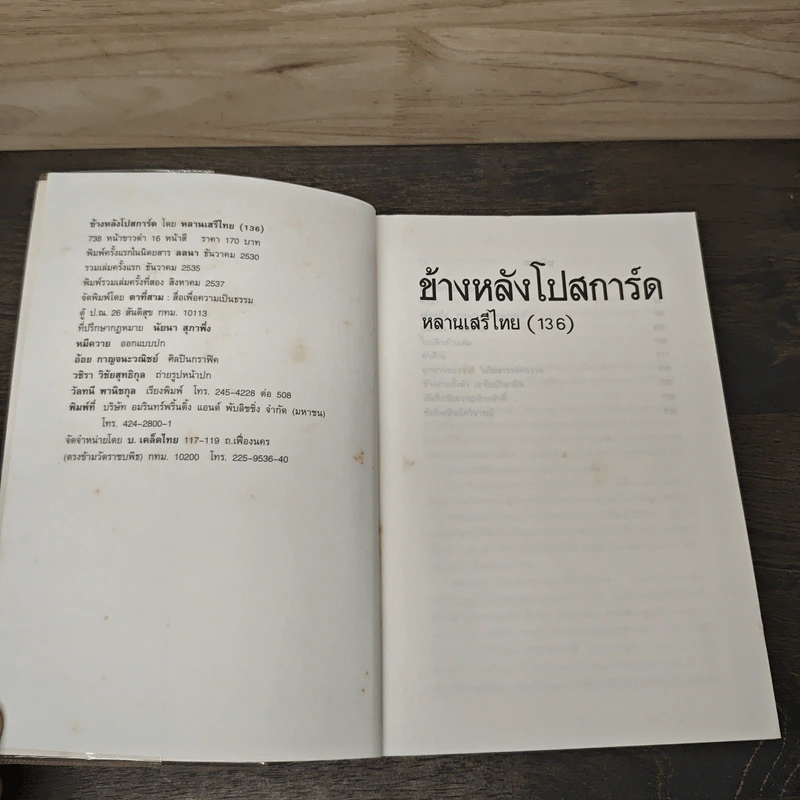 ข้างหลังโปสการ์ด โดย หลานเสรีไทย (136)
738 หน้าขาวดำ 16 หน้าสี ราคา 170 บาท
พิมพ์ครั้งแรกในนิตยสาร ลลนา ธันวาคม 2530
รวมเล่มครั้งแรก ธันวาคม 2535
พิมพ์รวมเล่มครั้งที่สอง สิงหาคม 2537
จัดพิมพ์โดย ตาที่สาม : สื่อเพื่อความเป็นธรรม
ตู้ ป.ณ. 26 สันติสุข กทม. 10113
ที่ปรึกษากฎหมาย นัยนา สุภาพึ่ง
หมีควาย ออกแบบปก
อ้อย กาญจนะวณิชย์ ศิลปินกราฟิค
วชิรา วิชัยสุทธิกุล ถ่ายรูปหน้าปก
วัลทนี พานิชกุล เรียงพิมพ์ โทร. 245-4228 ต่อ 508
พิมพ์ที่ บริษัท อมรินทร์พริ้นติ้ง แอนด์ พับลิชชิ่ง จำกัด (มหาชน)
โทร. 424-2800-1
จัดจำหน่ายโดย บ. เคล็ดไทย 117-119 ถ.เฟื่องนคร
(ตรงข้ามวัดราชบพิธ) กทม. 10200 โทร. 225-9536-40
ข้างหลังโปสการ์ด
หลานเสรีไทย (136)